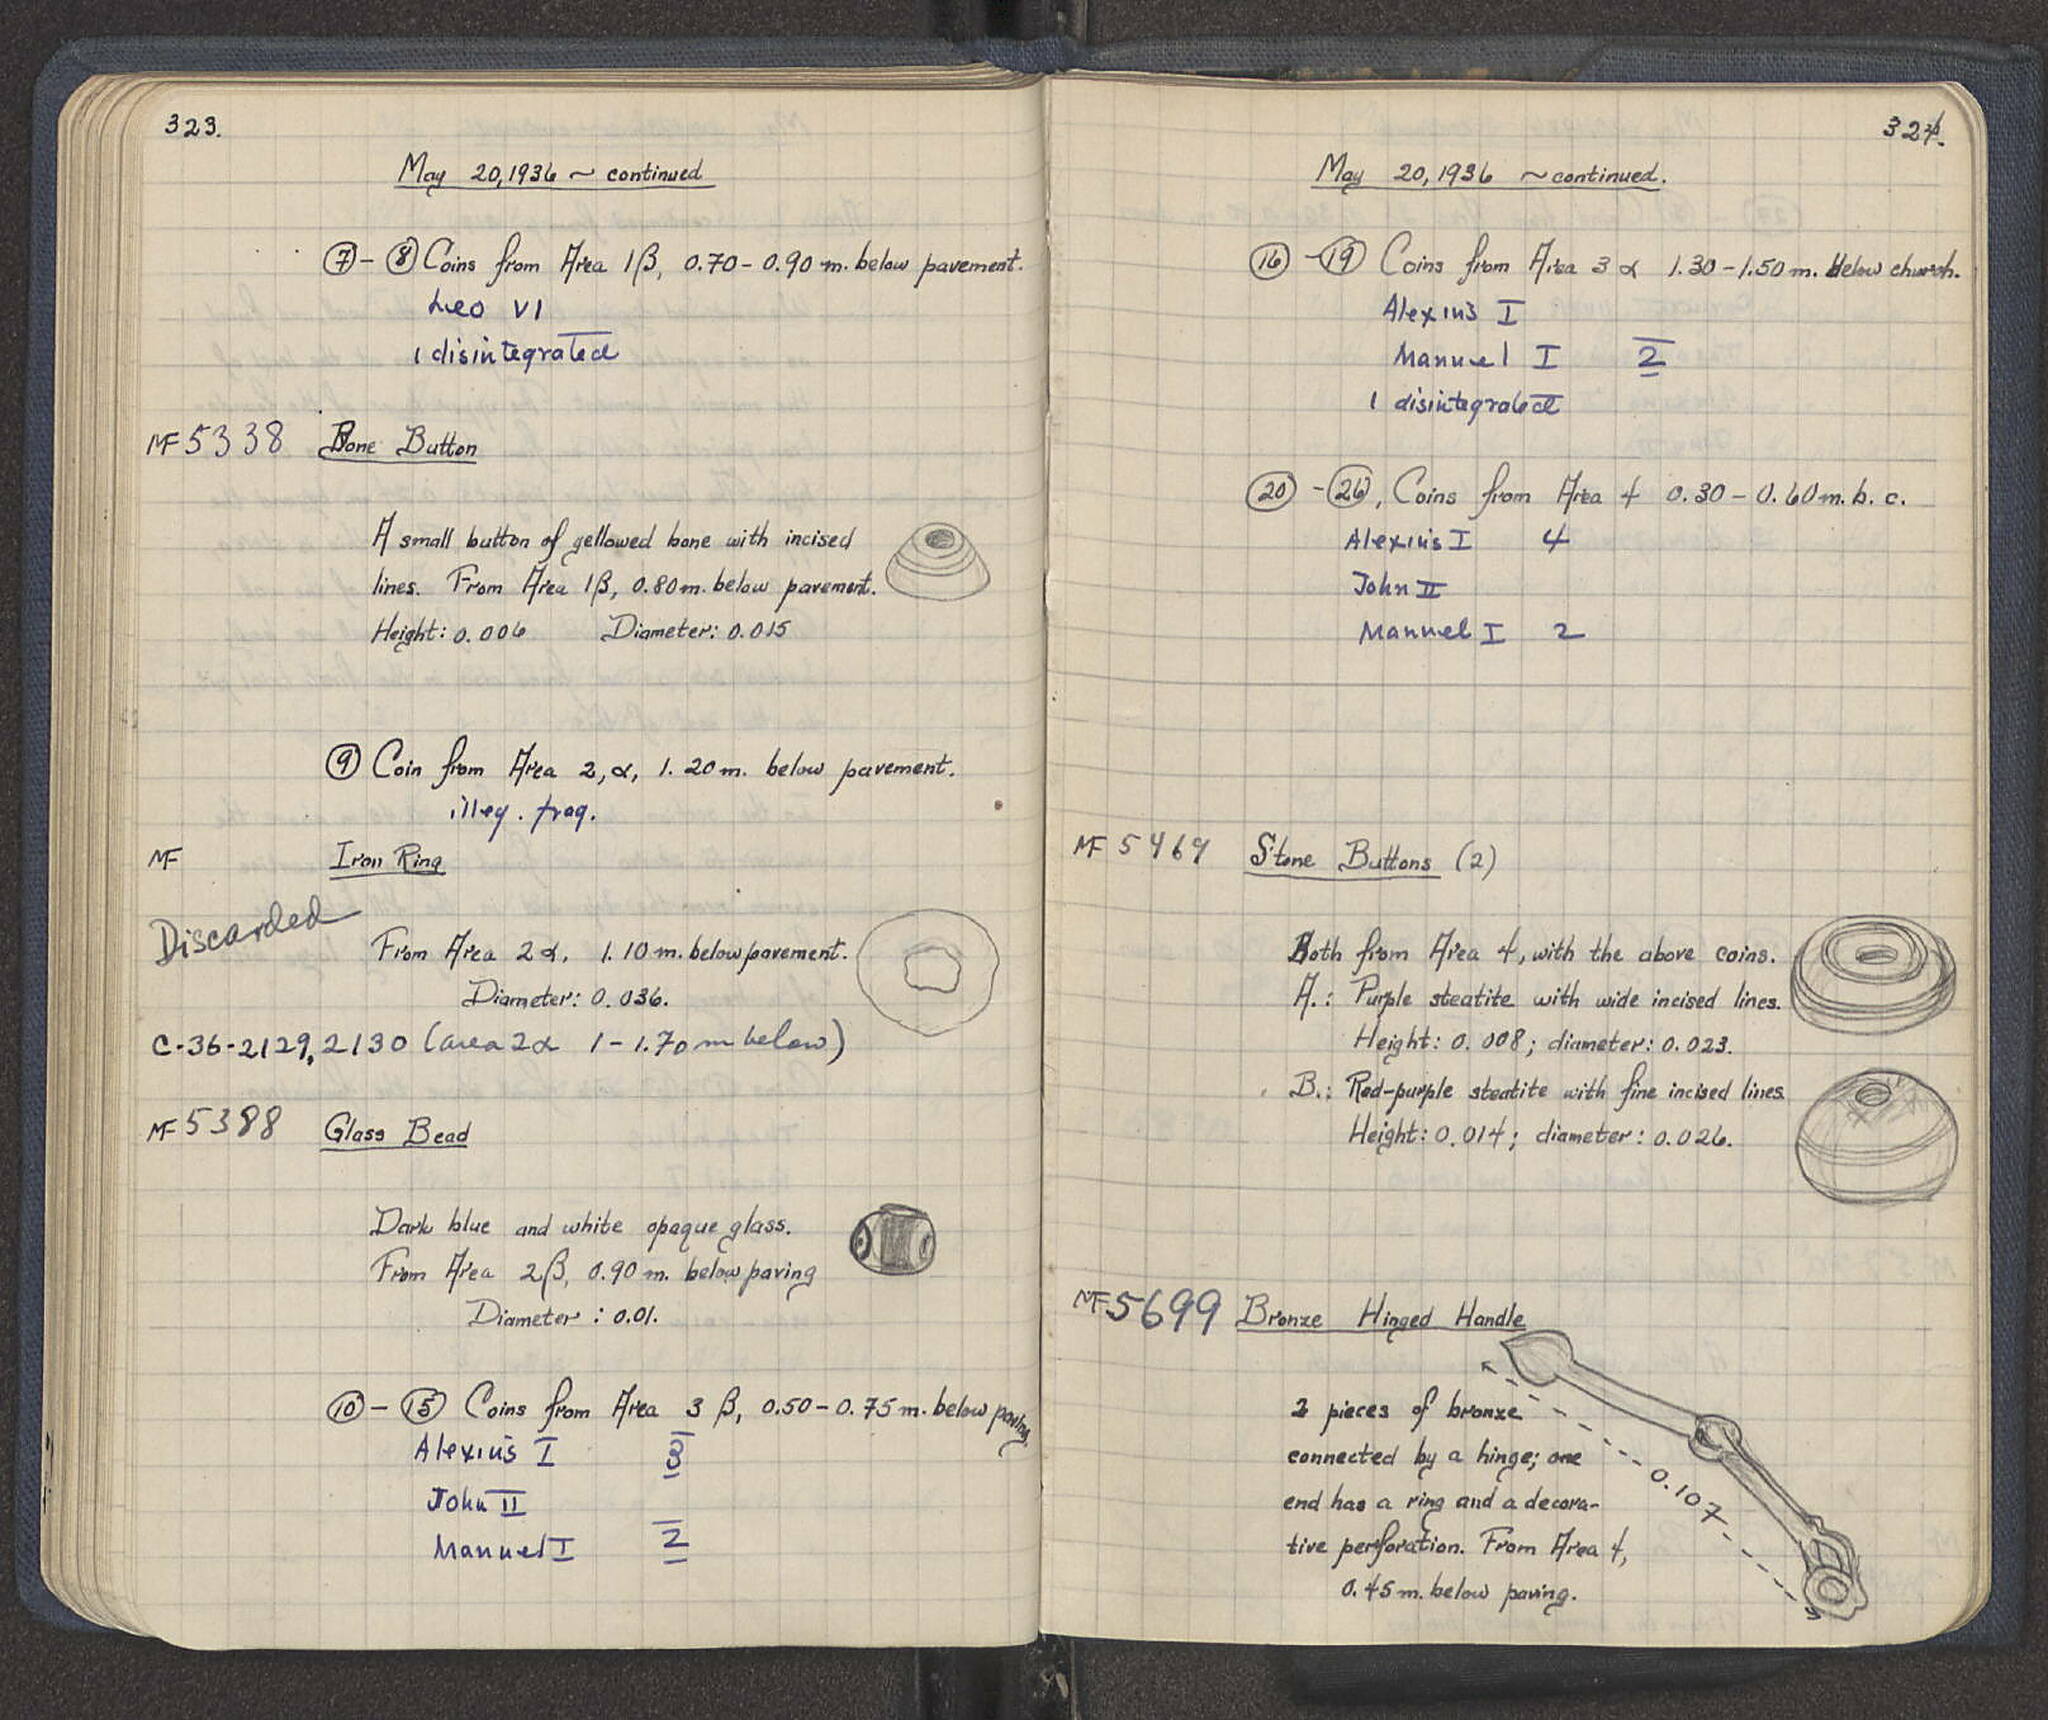 323.
May 20, 1936 ~ continued
⑦ - ⑧ Coins from Area 1β, 0.70 - 0.90 m. below pavement.
Leo VI
1 disintegrated
MF 5338 Bone Button
A small button of yellowed bone with incised
lines. From Area 1β, 0.80 m. below pavement.
Height: 0.006 Diameter: 0.015
⑨ Coin from Area 2, α, 1.20 m. below pavement.
illeg. frag.
MF Iron Ring
Discarded
From Area 2α, 1.10 m. below pavement.
Diameter: 0.036.
C-36-2129, 2130 (area 2α 1 - 1.70 m below)
MF 5388 Glass Bead
Dark blue and white opaque glass.
From Area 2β, 0.90 m. below paving
Diameter: 0.01.
⑩ - ⑮ Coins from Area 3 β, 0.50 - 0.75 m. below paving.
Alexius I 3
John II
Manuel I 2
324.
May 20, 1936 ~ continued.
⑯ - ⑲ Coins from Area 3 α 1.30 - 1.50 m. below church.
Alexius I
Manuel I 2
1 disintegrated
⑳ - ㉖, Coins from Area 4 0.30 - 0.60 m. b. c.
Alexius I 4
John II
Manuel I 2
MF 5469 Stone Buttons (2)
Both from Area 4, with the above coins.
A.: Purple steatite with wide incised lines.
Height: 0.008; diameter: 0.023.
B.: Red-purple steatite with fine incised lines.
Height: 0.014; diameter: 0.026.
MF 5699 Bronze Hinged Handle
2 pieces of bronze
connected by a hinge; one
end has a ring and a decora-
tive perforation. From Area 4,
0.45 m. below paving.
0.107